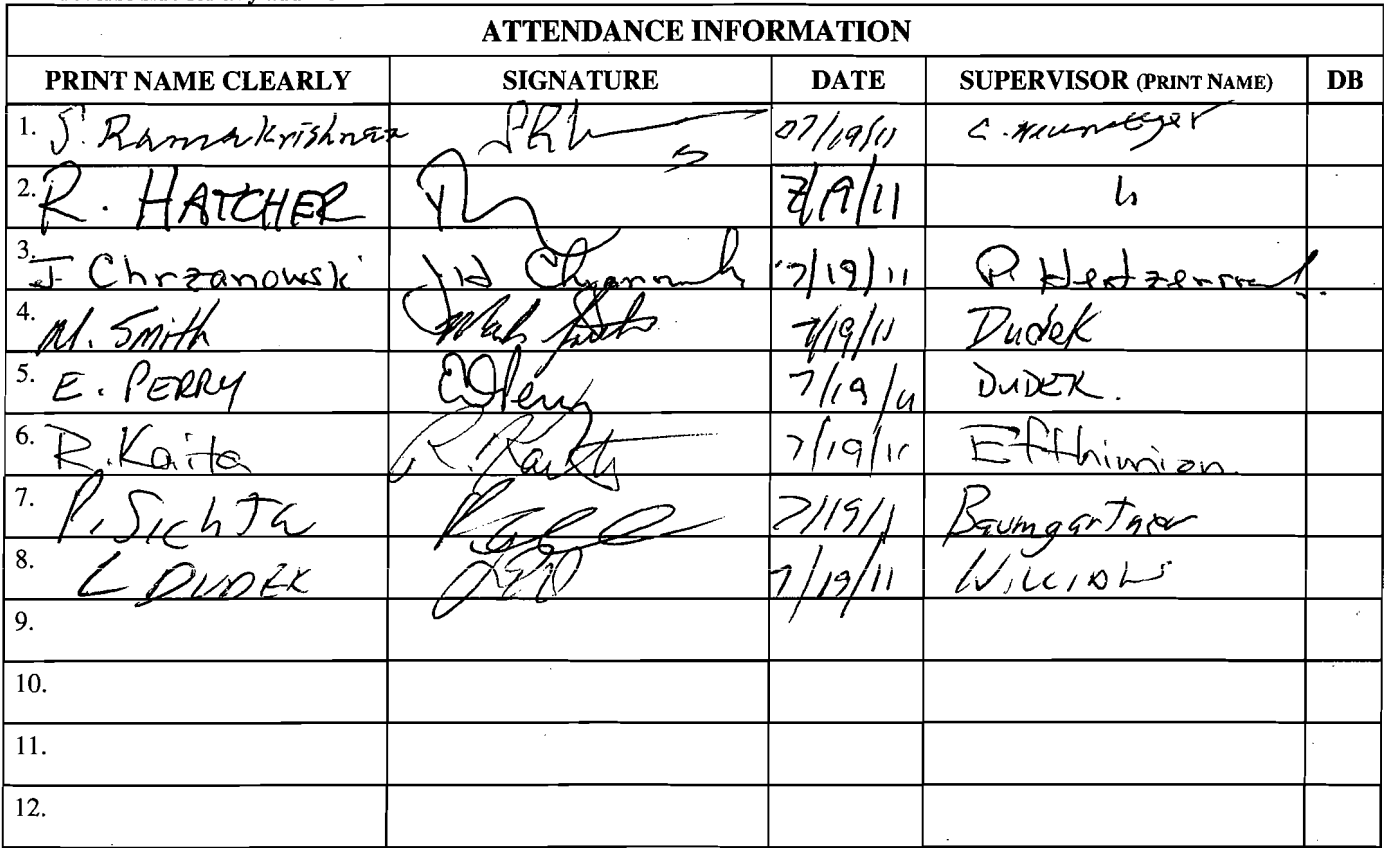 ATTENDANCE INFORMATION
PRINT NAME CLEARLY SIGNATURE DATE SUPERVISOR (PRINT NAME) DB
1. S. Ramakrishnan 07/19/11 C. Neumeyer
2. R. HATCHER 7/19/11 "
3. J Chrzanowski 7/19/11 P. 
4. M. Smith Mark Smith 7/19/11 Dudek
5. E. PERRY 7/19/11 DUDEK.
6. R. Kaita R. Kaita 7/19/11 Efthimion
7. P. Sichta 7/19/11 Baumgartner
8. L DUDEK 7/19/11 Williams
9.
10.
11.
12.